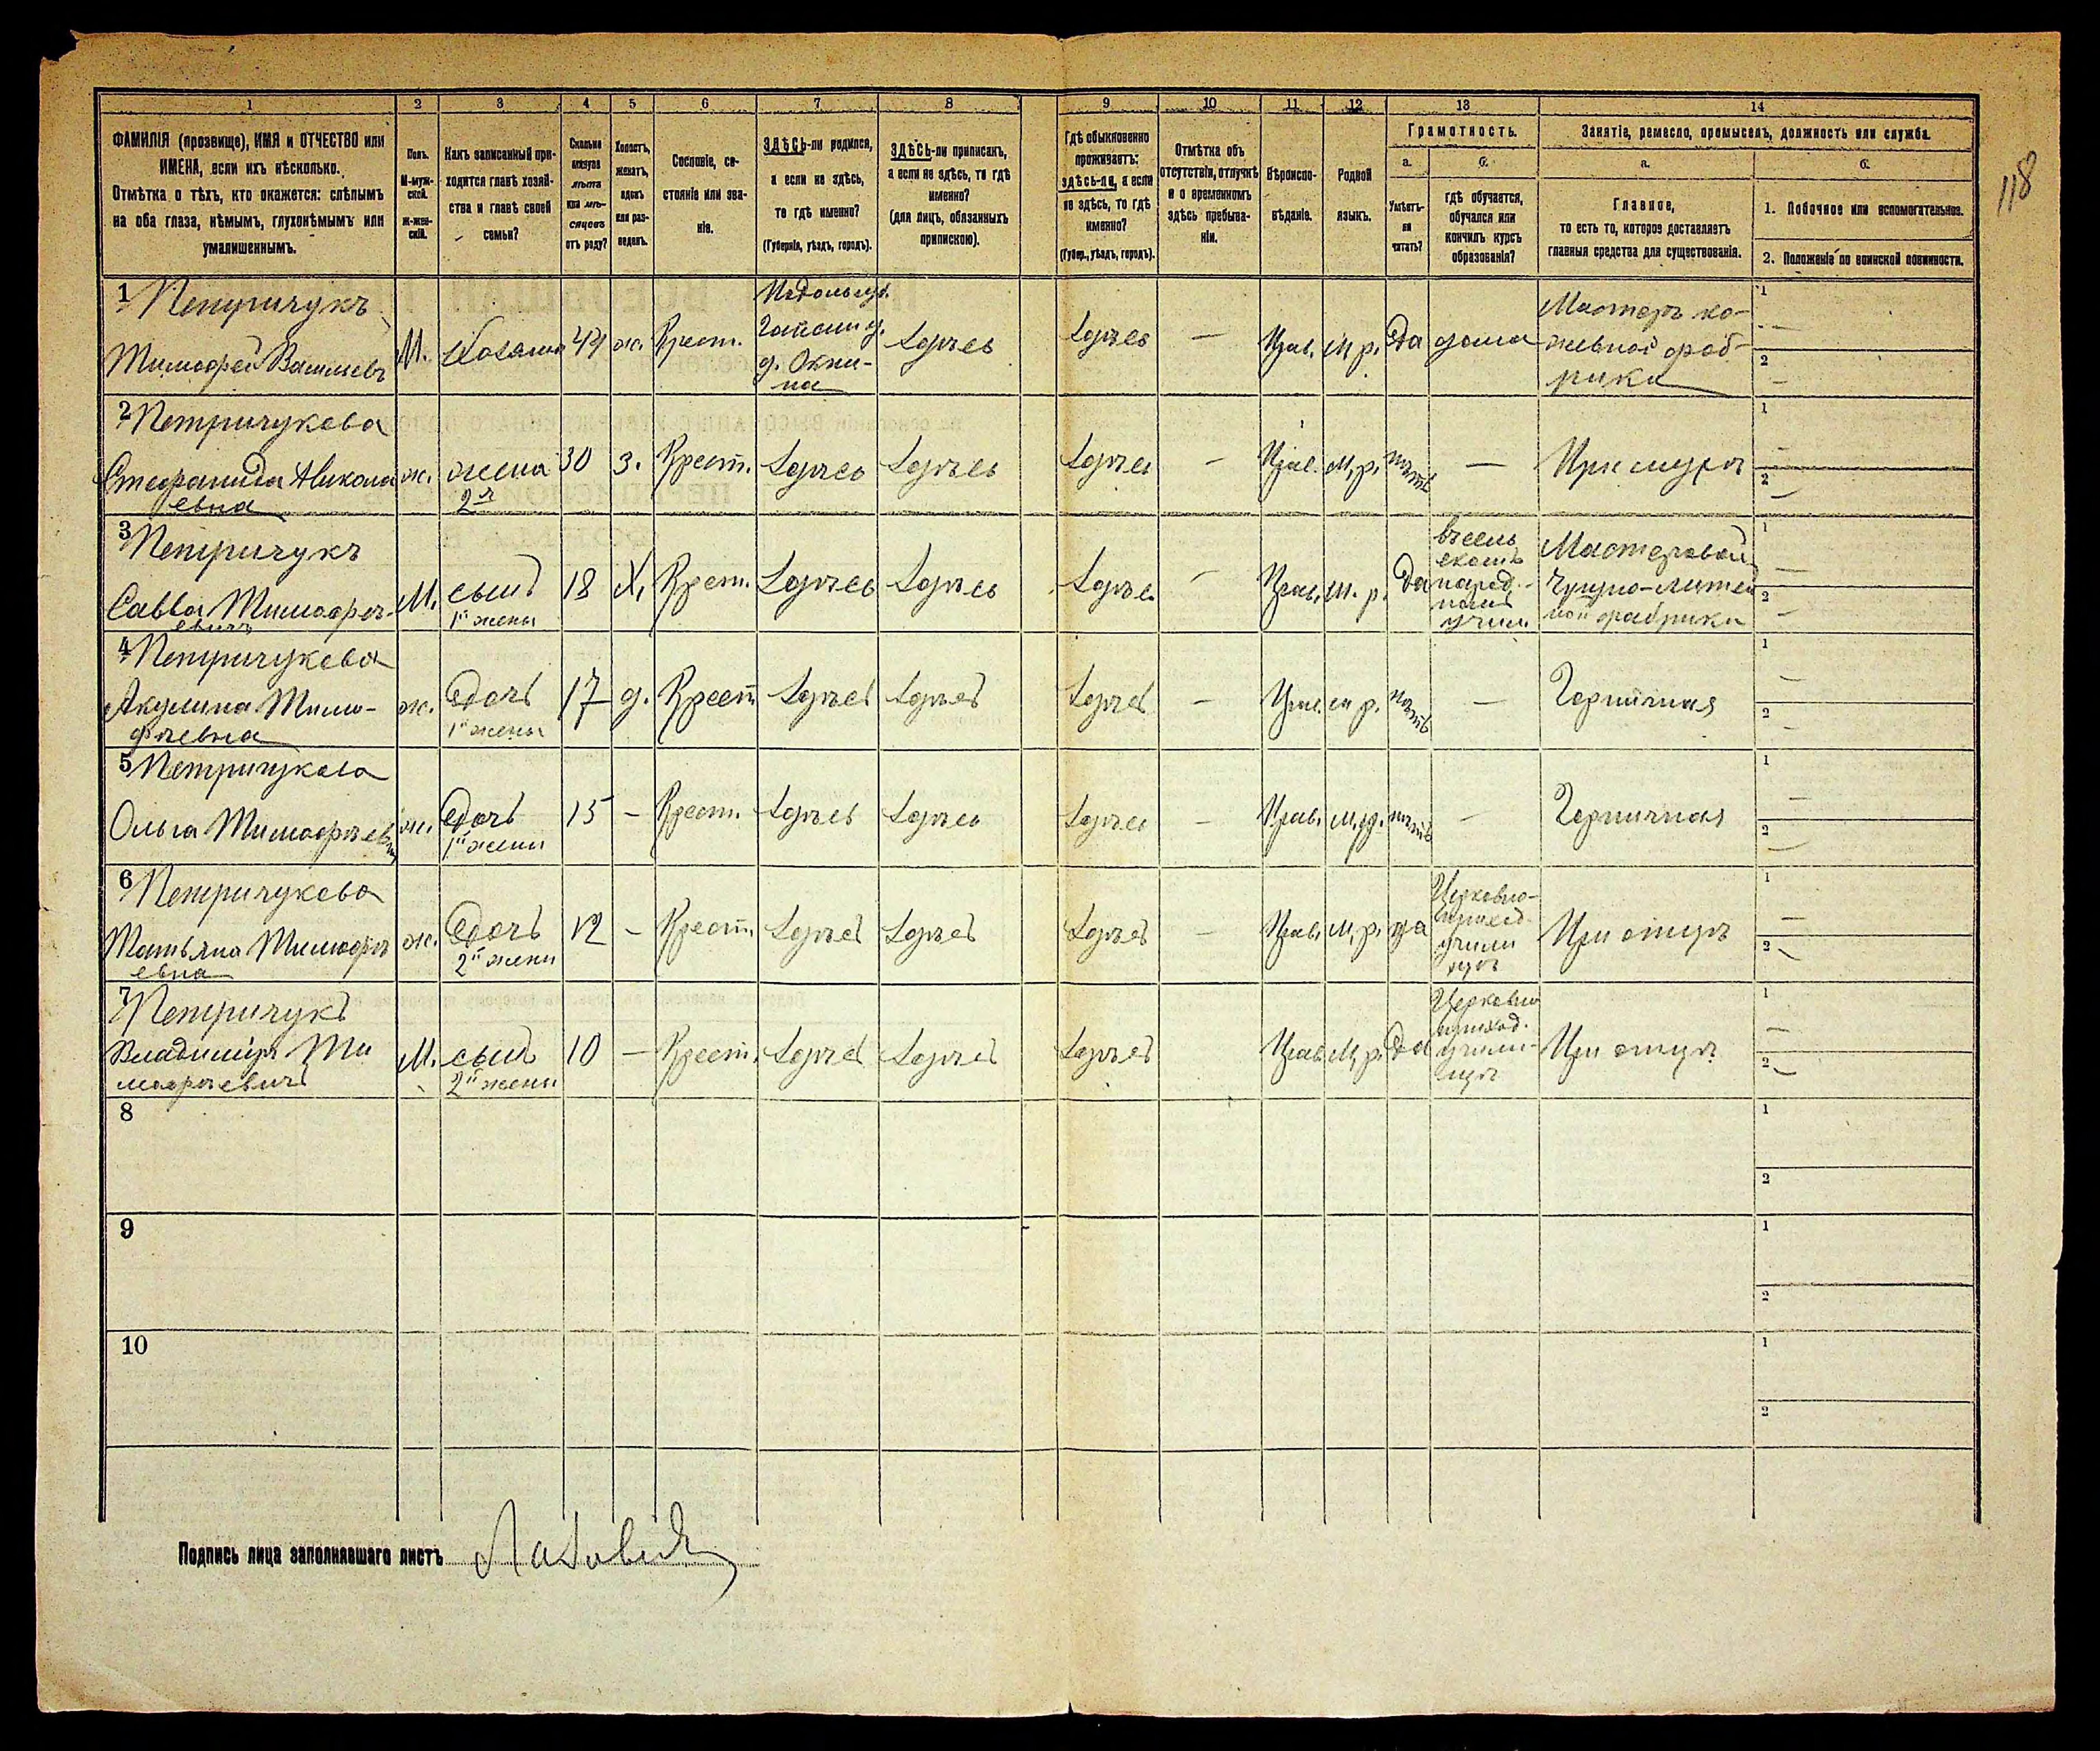 118
1 2 3 4 5 6 7 8 9 10 11 12 13 14
ФАМИЛІЯ (прозвище), ИМЯ и ОТЧЕСТВО или
ИМЕНА, если ихъ нѣсколько.
Отмѣтка о тѣхъ, кто окажется: слѣпымъ
на оба глаза, нѣмымъ, глухонѣмымъ или
умалишеннымъ.
Полъ.
М-муж-
ской.
Ж-жен-
скій.
Какъ записанный при-
ходится главѣ хозяй-
ства и главѣ своей
семьи?
Сколько
минуло
лѣтъ
или мѣ-
сяцевъ
отъ роду?
Холостъ,
женатъ,
вдовъ
или раз-
веденъ.
Сословіе, со-
стояніе или зва-
ніе.
ЗДѢСЬ-ли родился,
а если не здѣсь,
то гдѣ именно?
(Губернія, уѣздъ, городъ).
ЗДѢСЬ-ли приписанъ,
а если не здѣсь, то гдѣ
именно?
(для лицъ, обязанныхъ
припискою).
Гдѣ обыкновенно
проживаетъ:
здѣсь-ли, а если
не здѣсь, то гдѣ
именно?
(Губер., уѣздъ, городъ).
Отмѣтка объ
отсутствіи, отлучкѣ
и о временномъ
здѣсь пребыва-
ніи.
Вѣроиспо-
вѣданіе.
Родной
языкъ.
Грамотность.
а.
Умѣетъ-
ли
читать?
б.
гдѣ обучается,
обучался или
кончилъ курсъ
образованія?
Занятіе, ремесло, промыселъ, должность или служба.
а.
Главное,
то есть то, которое доставляетъ
главныя средства для существованія.
б.
1. Побочное или вспомогательное.
2. Положеніе по воинской повинности.
1 Петричукъ
Тимофей Васильевъ
М. хозяинъ 44 ж. Крест.
Подольск.
д. Окни-
на
здѣсь здѣсь — Прав. М.р. да дома
Мастеръ ко-
жевной фаб-
рики
1 —
2 —
2 Петричукева
Стефанида Никола
евна
ж. жена
2я
30 з. Крест. здѣсь здѣсь здѣсь — Прав. М.р. нѣтъ — При мужѣ
1 —
2 —
3 Петричукъ
Савва Тимофѣ-
евичъ
М. сынъ
1й жены
18 Х. Крест. здѣсь здѣсь здѣсь — Прав. М.р. да
въ сель
скомъ
народ-
номъ
учил
Мастеровой
Чугуно-литей
ной фабрики
1 —
2 —
4 Петричукева
Акулина Тимо-
фѣевна
ж. дочь
1й жены
17 д. Крест здѣсь здѣсь здѣсь — Прав. М.р. нѣтъ — Горничная
1 —
2 —
5 Петричукева
Ольга Тимофѣевна
ж. дочь
1й жены
15 — Крест. здѣсь здѣсь здѣсь — Прав. М.р. нѣтъ — Горничная
1 —
2 —
6 Петричукева
Татьяна Тимофѣ
евна
ж. дочь
2й жены
12 — Крест. здѣсь здѣсь здѣсь — Прав. М.р. да
Церковно-
приход.
учили
щѣ
При отцѣ
1 —
2 —
7 Петричукъ
Владиміръ Ти
мофѣевичъ
М. сынъ
2й жены
10 — Крест. здѣсь здѣсь здѣсь Прав. М.р. да
Церковно
приход.
учили-
щѣ
При отцѣ
1 —
2 —
8
1
2
9
1
2
10
1
2
Подпись лица заполнявшаго листъ